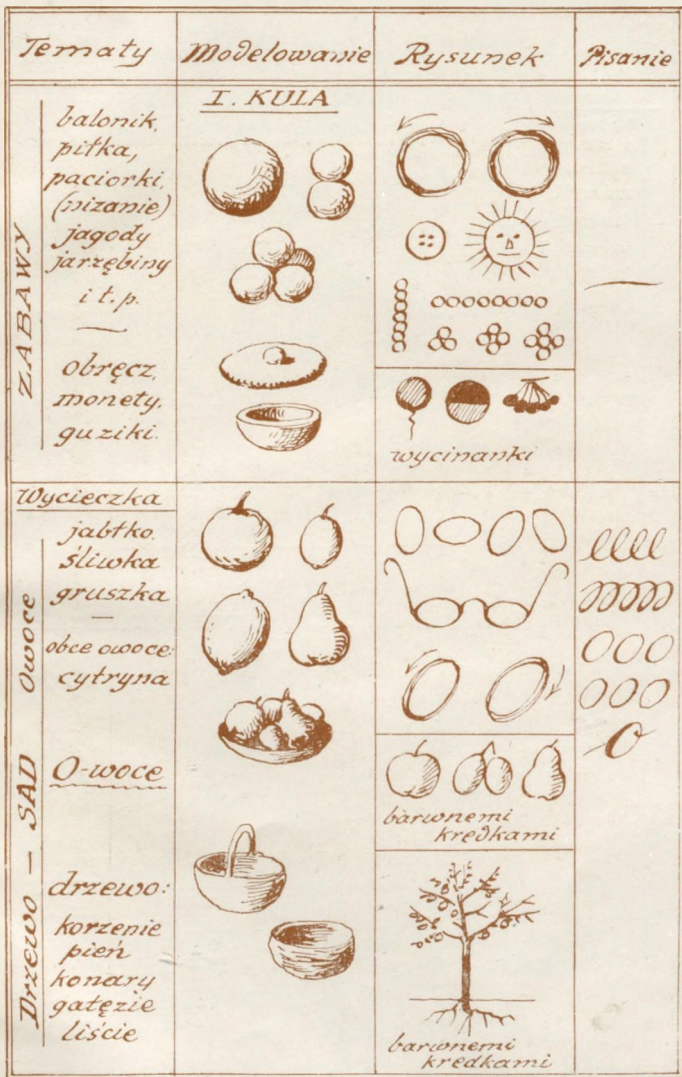 Tematy
Modelowanie
Rysunek
Pisanie
ZABAWY
balonik,
piłka,
paciorki,
(nizanie)
jagody
jarzębiny
i t. p.
obręcz,
monety,
guziki.
I. KULA
wycinanki
Drzewo – SAD Owoce
Wycieczka
jabłko,
śliwka
gruszka
–
obce owoce:
cytryna
O-woce
drzewo:
korzenie
pień
konary
gałęzie
liście
barwnemi
kredkami
barwnemi
kredkami
llll
OOO
OOO
O